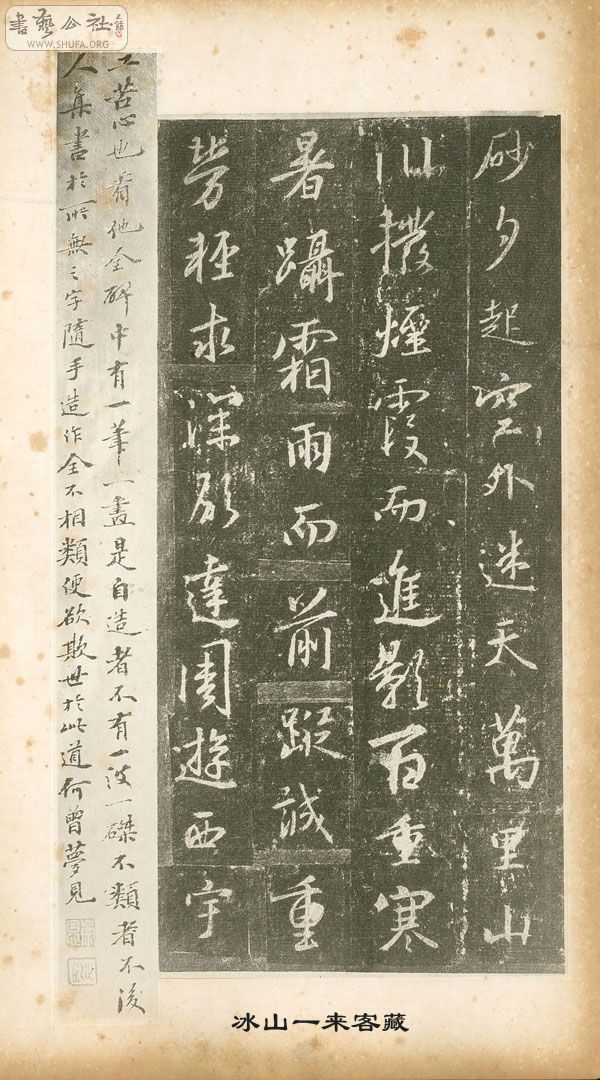 書藝公社
WWW.SHUFA.ORG
砂夕起空外迷天萬里山
川撥煙霞而進影百重寒
暑躡霜雨而前蹤誠重
勞輕求深願達周遊西宇
工苦心也看他全碑中有一筆一畫是自造者不有一波一磔不類者不後
人集書於所無之字隨手造作全不相類便欲欺世於此道何曾夢見
冰山一来客藏